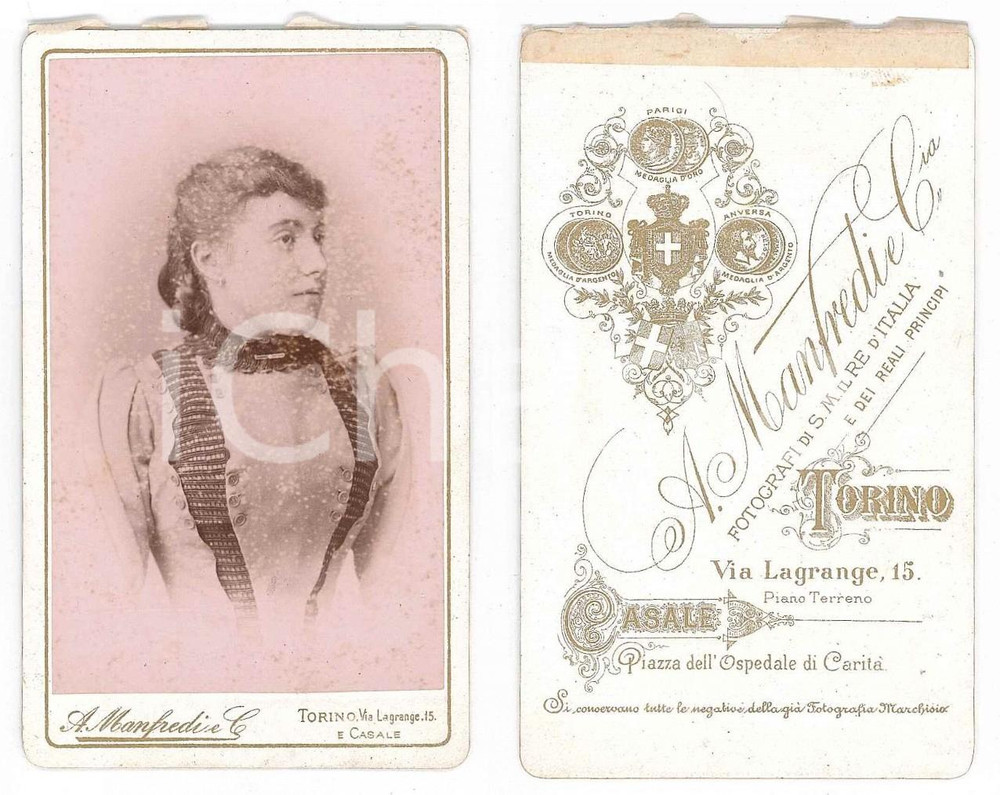 iCh
A. Manfredi e C
TORINO. Via Lagrange. 15.
E CASALE
PARIGI
MEDAGLIA D'ORO
TORINO
MEDAGLIA D'ARGENTO
ANVERSA
MEDAGLIA D'ARGENTO
A. Manfredi e Cia
FOTOGRAFI DI S. M. IL RE D'ITALIA
E DEI REALI PRINCIPI
TORINO
Via Lagrange, 15.
Piano Terreno
CASALE
Piazza dell'Ospedale di Carità
Si conservano tutte le negative della già Fotografia Marchisio